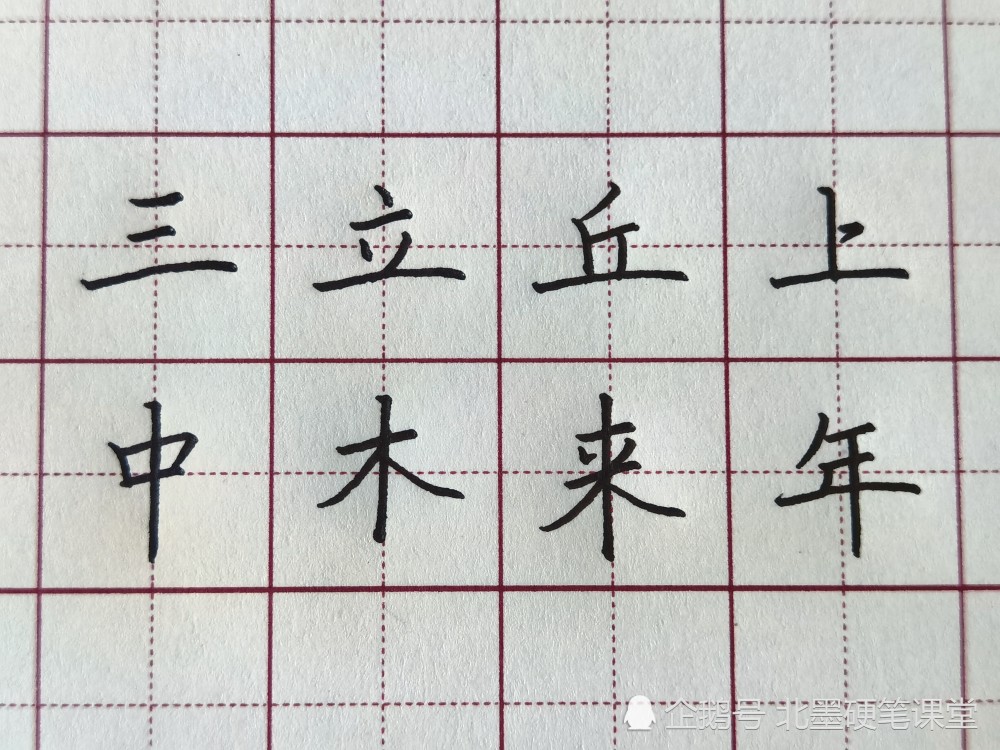 三立丘上
中木来年
企鹅号 北墨硬笔课堂